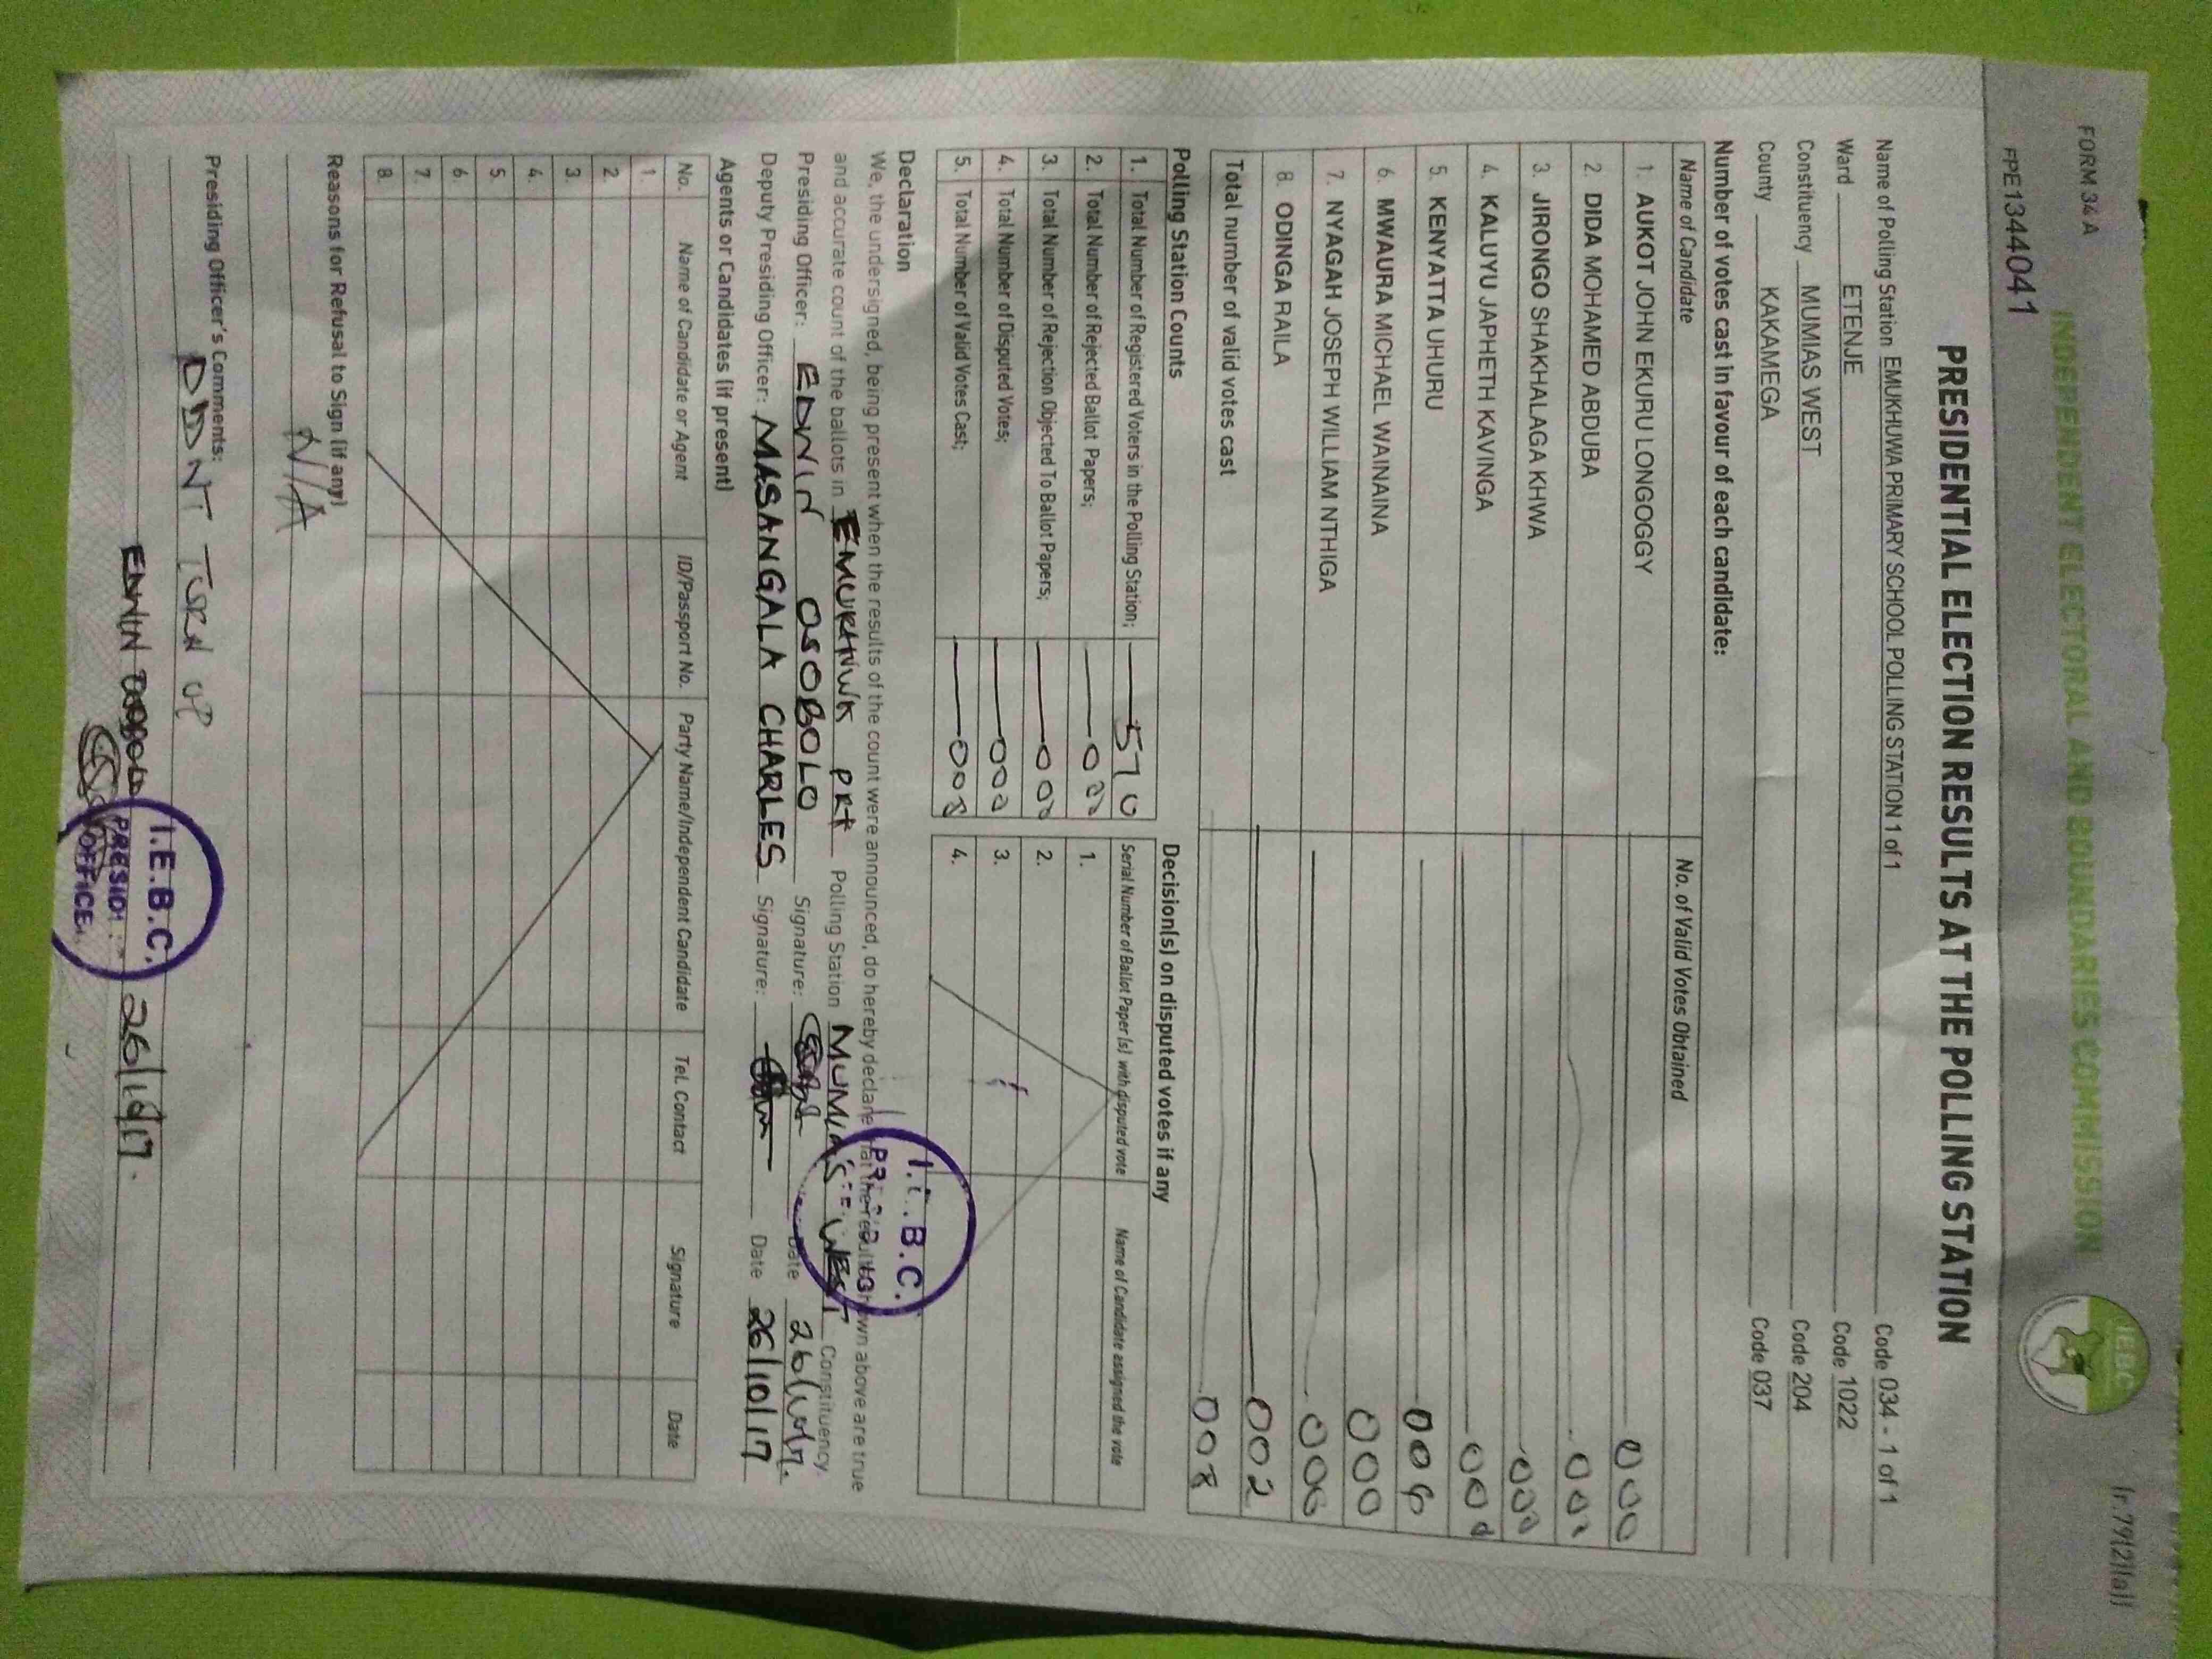 FORM 34 A
(r.79(2)(a))
INDEPENDENT ELECTORAL AND BOUNDARIES COMMISSION
IEBC
PPE1344041
PRESIDENTIAL ELECTION RESULTS AT THE POLLING STATION
Name of Polling Station EMUKHUWA PRIMARY SCHOOL POLLING STATION 1 of 1 Code 034 - 1 of 1
Ward ETENJE Code 1022
Constituency MUMIAS WEST Code 204
County KAKAMEGA Code 037
Number of votes cast in favour of each candidate:
Name of Candidate No. of Valid Votes Obtained
1. AUKOT JOHN EKURU LONGOGGY 000
2. DIDA MOHAMED ABDUBA 000
3. JIRONGO SHAKHALAGA KHWA 000
4. KALUYU JAPHETH KAVINGA 000
5. KENYATTA UHURU 006
6. MWAURA MICHAEL WAINAINA 000
7. NYAGAH JOSEPH WILLIAM NTHIGA 000
8. ODINGA RAILA 002
Total number of valid votes cast 008
Polling Station Counts
1. Total Number of Registered Voters in the Polling Station; 570
2. Total Number of Rejected Ballot Papers; 000
3. Total Number of Rejection Objected To Ballot Papers; 000
4. Total Number of Disputed Votes; 000
5. Total Number of Valid Votes Cast; 008
Decision(s) on disputed votes if any
Serial Number of Ballot Paper (s) with disputed vote Name of Candidate assigned the vote
1.
2.
3.
4.
Declaration
We, the undersigned, being present when the results of the count were announced, do hereby declare that the results shown above are true
and accurate count of the ballots in EMUKHWA PRY Polling Station MUMIAS WEST Constituency
Presiding Officer: EDWIN OSOBOLO Signature: Date 26/10/17.
Deputy Presiding Officer: MASANGALA CHARLES Signature: Date 26/10/17
I.E.B.C.
Agents or Candidates (if present)
No. Name of Candidate or Agent ID/Passport No. Party Name/Independent Candidate Tel. Contact Signature Date
1.
2.
3.
4.
5.
6.
7.
8.
Reasons for Refusal to Sign (if any)
N/A
Presiding Officer's Comments:
DIDNT TURN UP
26/10/17.
I.E.B.C.
PRESIDI
OFFICE